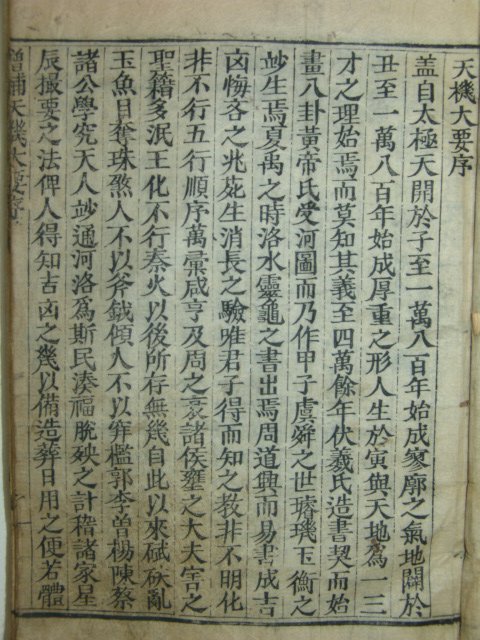 天機大要序
盖自太極天開於子至一萬八百年始成寥廓之氣地闢於
丑至一萬八百年始成厚重之形人生於寅與天地為一三
才之理始焉而莫知其義至四萬餘年伏羲氏造書契而始
畫八卦黃帝氏受河圖而乃作甲子虞舜之世璿璣玉衡之
妙生焉夏禹之時洛水靈龜之書出焉周道興而易書成吉
凶悔吝之兆茈生消長之驗唯君子得而知之教非不明化
非不行五行順序萬彙咸亨及周之衰諸侯壅之大夫害之
聖籍多泯王化不行秦火以後所存無幾自此以來碔砆亂
玉魚目奪珠煞人不以斧鉞傾人不以穽檻郭李曾楊陳蔡
諸公學究天人妙通河洛爲斯民湊福脫殃之計稽諸家星
辰撮要之法俾人得知吉凶之幾以備造葬日用之便若體
增補天機大要序